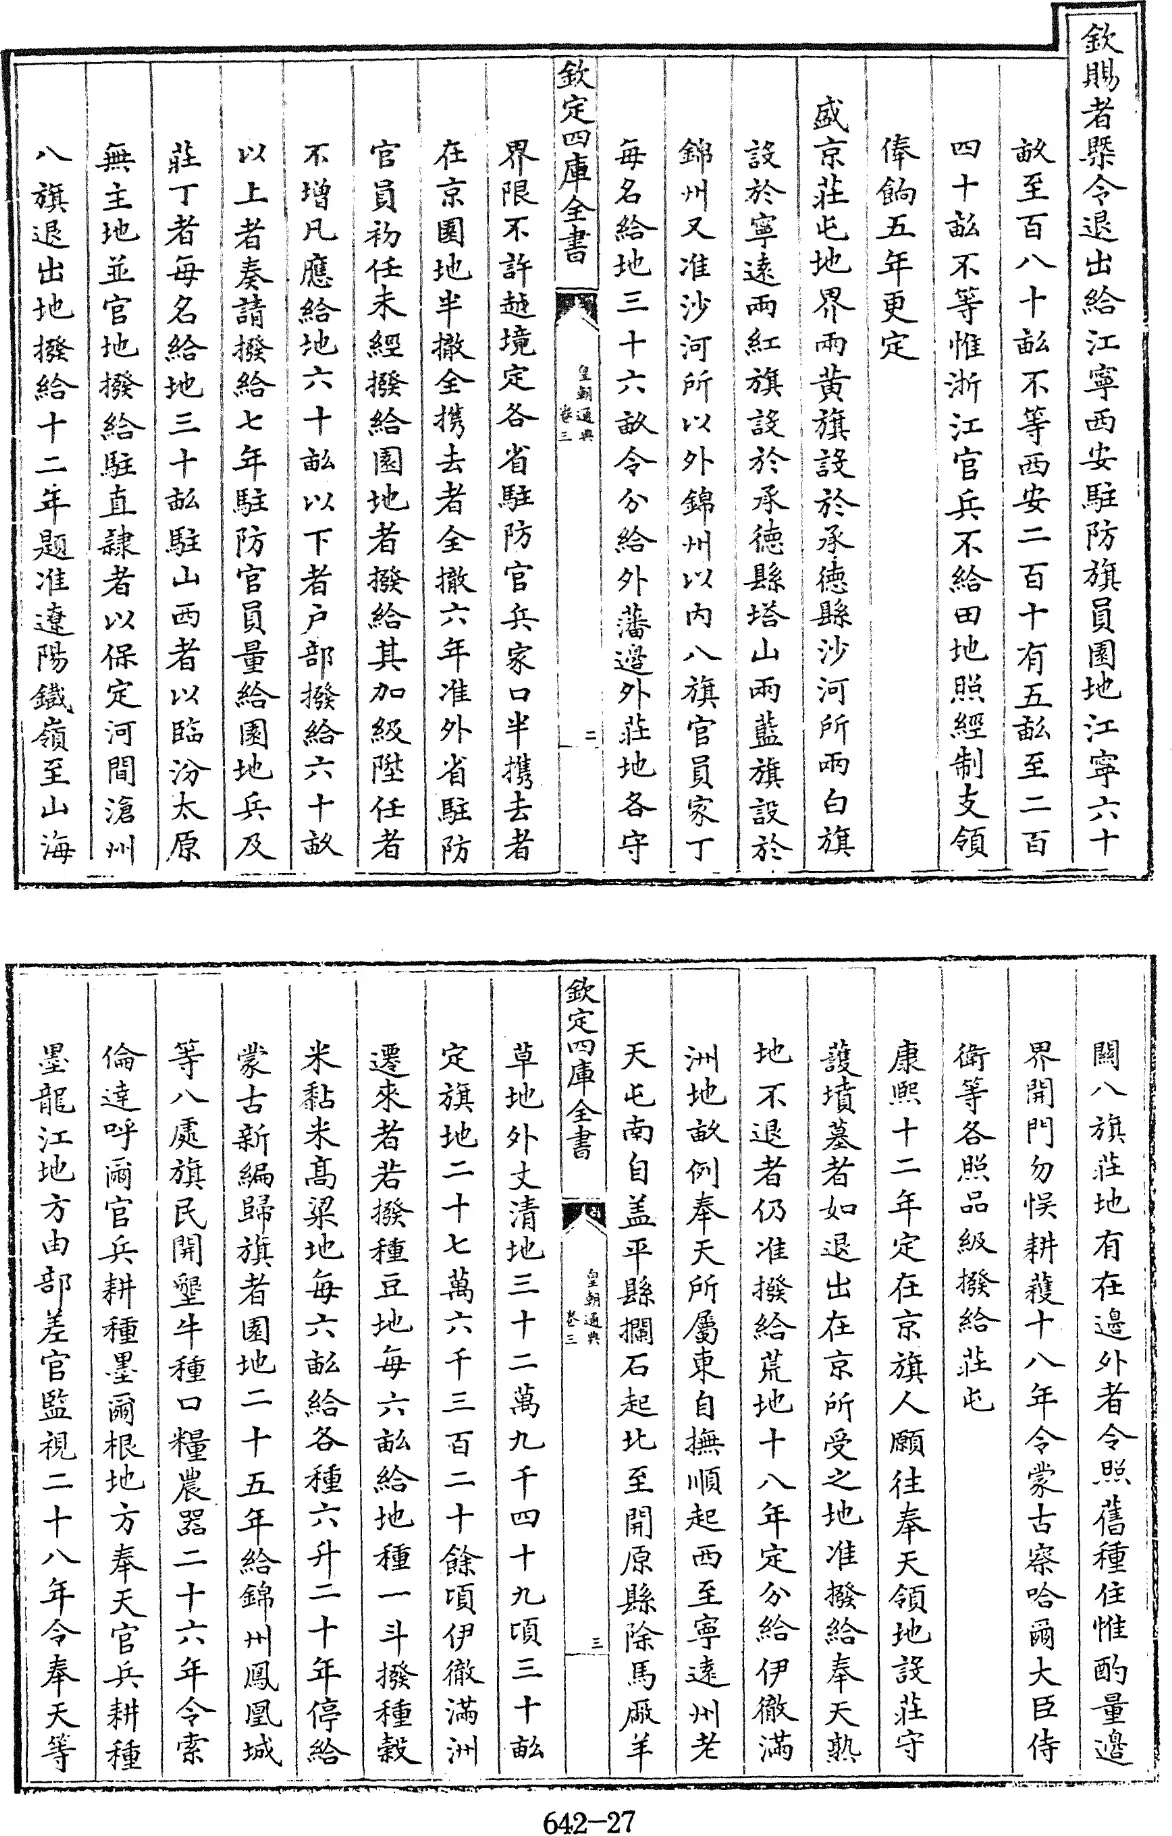 欽賜者槩令退出給江寧西安駐防旗員園地江寧六十
畝至百八十畝不等西安二百十有五畝至二百
四十畝不等惟浙江官兵不給田地照經制支領
俸餉五年更定
盛京莊屯地界兩黃旗設於承德縣沙河所兩白旗
設於寧遠兩紅旗設於承德縣塔山兩藍旗設於
錦州又准沙河所以外錦州以内八旗官員家丁
每名給地三十六畝令分給外藩邊外莊地各守
欽定四庫全書
皇朝通典
卷三
二
界限不許越境定各省駐防官兵家口半携去者
在京園地半撤全携去者全撤六年准外省駐防
官員初任未經撥給園地者撥給其加級陞任者
不增凡應給地六十畝以下者戸部撥給六十畝
以上者奏請撥給七年駐防官員量給園地兵及
莊丁者每名給地三十畝駐山西者以臨汾太原
無主地並官地撥給駐直隸者以保定河間滄州
八旗退出地撥給十二年題准遼陽鐵嶺至山海
關八旗莊地有在邊外者令照舊種住惟酌量邊
界開門勿悞耕穫十八年令蒙古察哈爾大臣侍
衛等各照品級撥給莊屯
康熙十二年定在京旗人願往奉天領地設莊守
護墳墓者如退出在京所受之地准撥給奉天熟
地不退者仍准撥給荒地十八年定分給伊徹滿
洲地畝例奉天所屬東自撫順起西至寧遠州老
天屯南自盖平縣攔石起北至開原縣除馬厰羊
欽定四庫全書
皇朝通典
卷三
三
草地外丈清地三十二萬九千四十九頃三十畝
定旗地二十七萬六千三百二十餘頃伊徹滿洲
遷來者若撥種豆地每六畝給地種一斗撥種穀
米黏米髙粱地每六畝給各種六升二十年停給
蒙古新編歸旗者園地二十五年給錦州鳳凰城
等八處旗民開墾牛種口糧農器二十六年令索
倫達呼爾官兵耕種墨爾根地方奉天官兵耕種
墨龍江地方由部差官監視二十八年令奉天等
642-27